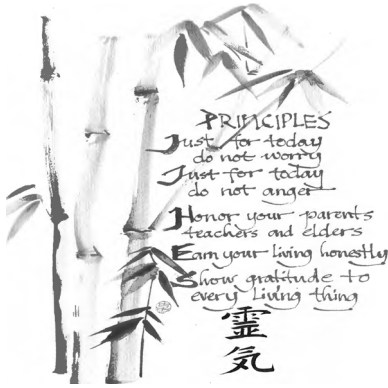 PRINCIPLES
Just for today
do not worry
Just for today
do not anger
Honor your parents
teachers and elders
Earn your living honestly
Show gratitude to
every Living thing
靈
気